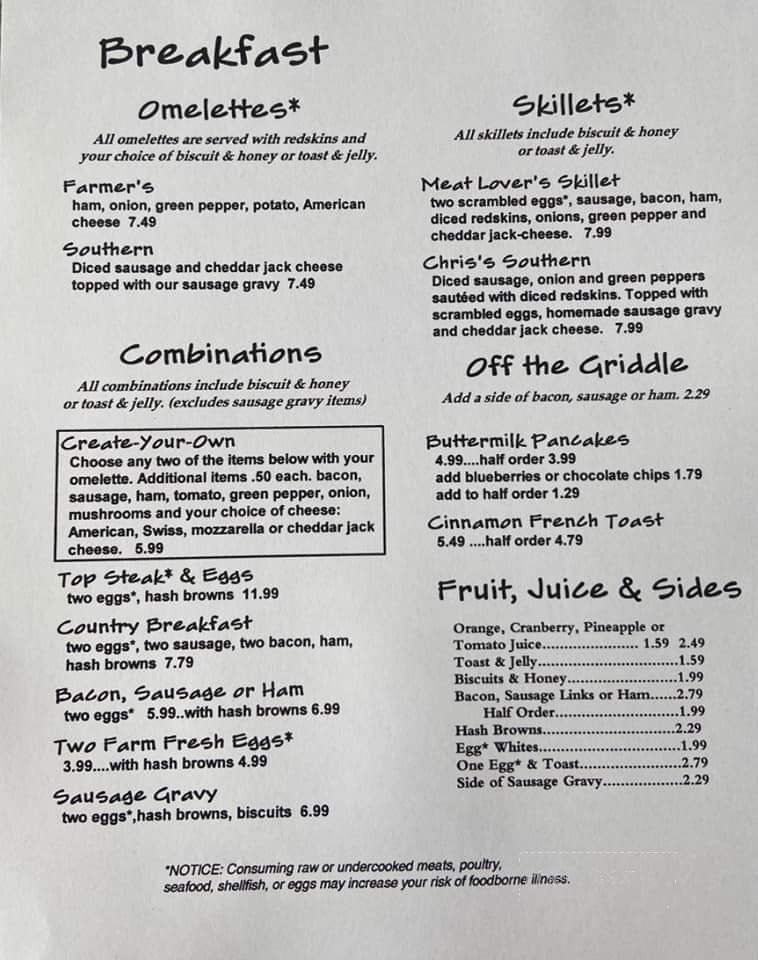 Breakfast
Omelettes*
All omelettes are served with redskins and
your choice of biscuit & honey or toast & jelly.
Farmer's
ham, onion, green pepper, potato, American
cheese 7.49
Southern
Diced sausage and cheddar jack cheese
topped with our sausage gravy 7.49
Combinations
All combinations include biscuit & honey
or toast & jelly. (excludes sausage gravy items)
Create-Your-Own
Choose any two of the items below with your
omelette. Additional items .50 each. bacon,
sausage, ham, tomato, green pepper, onion,
mushrooms and your choice of cheese:
American, Swiss, mozzarella or cheddar jack
cheese. 5.99
Top Steak* & Eggs
two eggs*, hash browns 11.99
Country Breakfast
two eggs*, two sausage, two bacon, ham,
hash browns 7.79
Bacon, Sausage or Ham
two eggs* 5.99..with hash browns 6.99
Two Farm Fresh Eggs*
3.99....with hash browns 4.99
Sausage Gravy
two eggs*,hash browns, biscuits 6.99
Skillets*
All skillets include biscuit & honey
or toast & jelly.
Meat Lover's Skillet
two scrambled eggs*, sausage, bacon, ham,
diced redskins, onions, green pepper and
cheddar jack-cheese. 7.99
Chris's Southern
Diced sausage, onion and green peppers
sautéed with diced redskins. Topped with
scrambled eggs, homemade sausage gravy
and cheddar jack cheese. 7.99
Off the Griddle
Add a side of bacon, sausage or ham. 2.29
Buttermilk Pancakes
4.99....half order 3.99
add blueberries or chocolate chips 1.79
add to half order 1.29
Cinnamon French Toast
5.49 ....half order 4.79
Fruit, Juice & Sides
Orange, Cranberry, Pineapple or
Tomato Juice...................... 1.59 2.49
Toast & Jelly................................1.59
Biscuits & Honey.........................1.99
Bacon, Sausage Links or Ham......2.79
Half Order............................1.99
Hash Browns..............................2.29
Egg* Whites................................1.99
One Egg* & Toast.......................2.79
Side of Sausage Gravy..................2.29
*NOTICE: Consuming raw or undercooked meats, poultry,
seafood, shellfish, or eggs may increase your risk of foodborne illness.